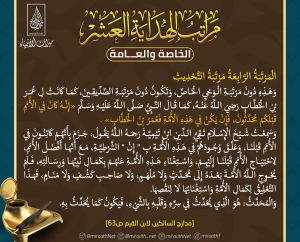 مراتب الهداية العشر
الخاصة والعامة
ميراث الأنبياء
المَرْتَبَةُ الرَّابِعَةُ مَرْتَبَةُ التَّحْدِيثِ
وَهَذِهِ دُونَ مَرْتَبَةِ الْوَحْيِ الْخَاصِّ، وَتَكُونُ دُونَ مَرْتَبَةِ الصِّدِّيقِينَ، كَمَا كَانَتْ لِعُمَرَ
بْنِ الْخَطَّابِ رَضِيَ اللَّهُ عَنْهُ، كَمَا قَالَ النَّبِيُّ صَلَّى اللَّهُ عَلَيْهِ وَسَلَّمَ «إِنَّهُ كَانَ فِي الْأُمَمِ
قَبْلَكُمْ مُحَدَّثُونَ، فَإِنْ يَكُنْ فِي هَذِهِ الْأُمَّةِ فَعُمَرُ بْنُ الْخَطَّابِ» .
وَسَمِعْتُ شَيْخَ الْإِسْلَامِ تَقِيَّ الدِّينِ ابْنَ تَيْمِيَّةَ رَحِمَهُ اللَّهُ يَقُولُ: جَزَمَ بِأَنَّهُمْ كَائِنُونَ فِي
الْأُمَمِ قَبْلَنَا، وَعَلَّقَ وُجُودَهُمْ فِي هَذِهِ الْأُمَّةِ بِ " إِنْ " الشَّرْطِيَّةِ، مَعَ أَنَّهَا أَفْضَلُ الْأُمَمِ،
لِاحْتِيَاجِ الْأُمَمِ قَبْلَنَا إِلَيْهِمْ، وَاسْتِغْنَاءِ هَذِهِ الْأُمَّةِ عَنْهُمْ بِكَمَالِ نَبِيِّهَا وَرِسَالَتِهِ، فَلَمْ
يُحْوِجِ اللَّهُ الْأُمَّةَ بَعْدَهُ إِلَى مُحَدَّثٍ وَلَا مُلْهَمٍ، وَلَا صَاحِبِ كَشْفٍ وَلَا مَنَامٍ، فَهَذَا
التَّعْلِيقُ لِكَمَالِ الْأُمَّةِ وَاسْتِغْنَائِهَا لَا لِنَقْصِهَا.
وَالْمُحَدَّثُ: هُوَ الَّذِي يُحَدَّثُ فِي سِرِّهِ وَقَلْبِهِ بِالشَّيْءِ، فَيَكُونُ كَمَا يُحَدَّثُ بِهِ.
[مدارج السالكين لابن القيم ص63]
@miraathNet
@miraathnet
miraath.net